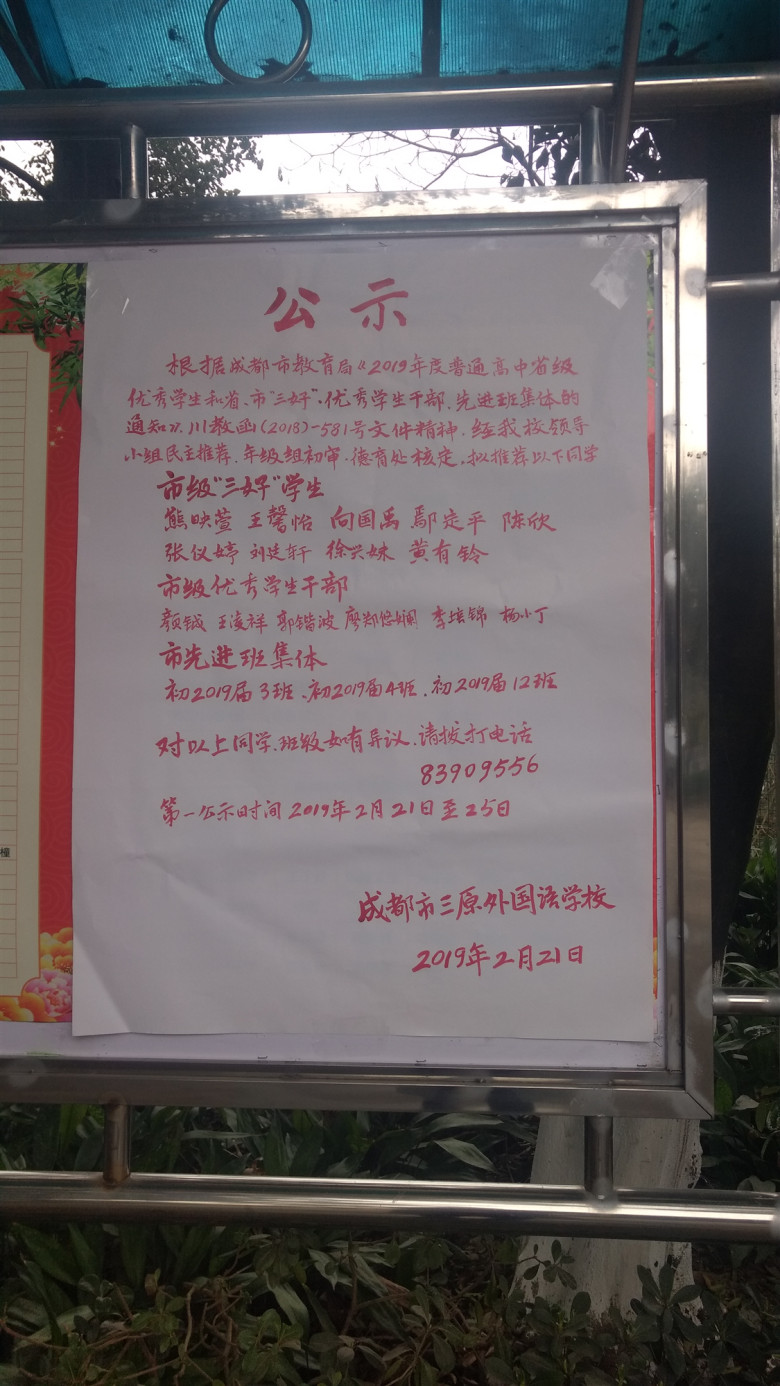 公示
根据成都市教育局《2019年度普通高中省级
优秀学生和省、市"三好"、优秀学生干部、先进班集体的
通知》、川教函(2018)-581号文件精神、经我校领导
小组民主推荐、年级组初审、德育处核定,拟推荐以下同学
市级"三好"学生
熊映萱 王馨怡 向国禹 鄢定平 陈欣
张仪婷 刘廷轩 徐兴妹 黄有铃
市级优秀学生干部
颜钺 王凌祥 郭锴波 廖郑悠娴 李培锦 杨小丁
市先进班集体
初2019届3班、初2019届4班、初2019届12班
对以上同学、班级如有异议、请拨打电话
83909556
第一公示时间2019年2月21日至25日
成都市三原外国语学校
2019年2月21日
橦